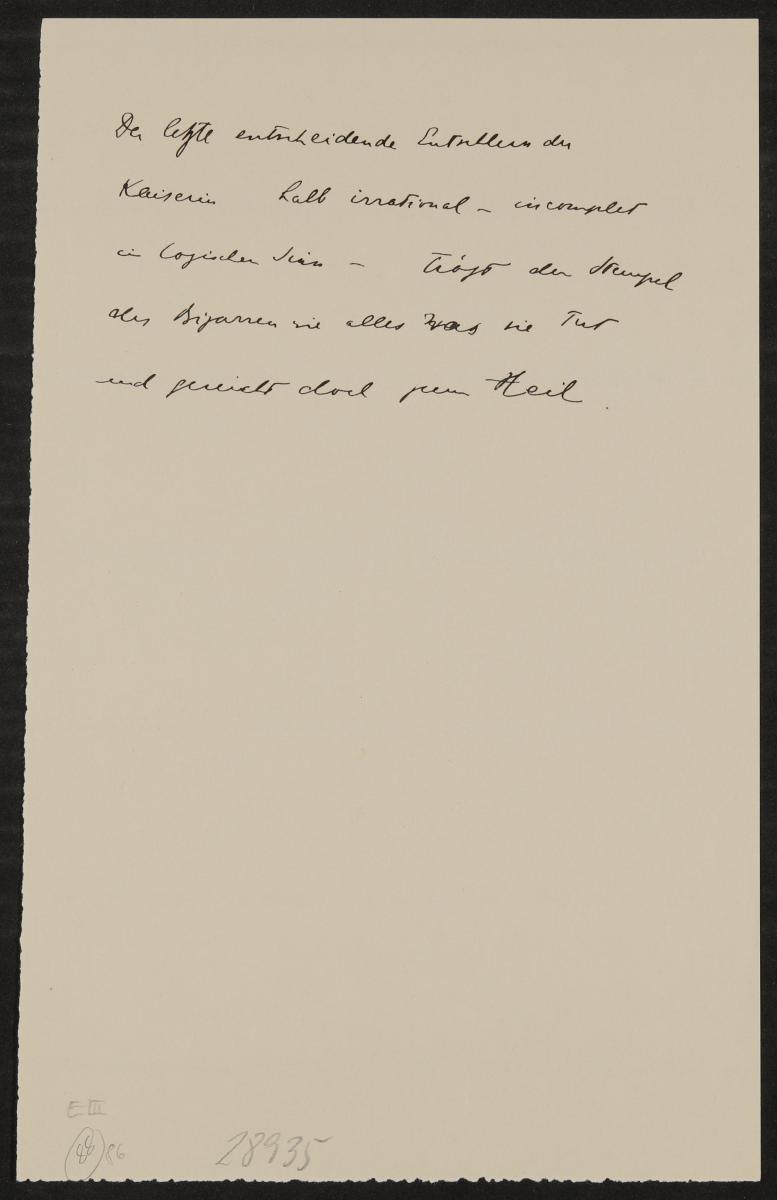 Der letzte entscheidende Entschluss der
Kaiserin halb irrational – incomplet
im logischen Sinn – trägt den Stempel
des Bizarren wie alles was sie tut
und gereicht doch zum Heil.
E III
86
28935